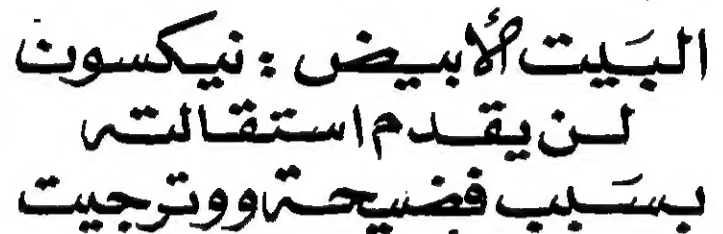 البَيت الأبيض : نيكسون
لن يقدم استقالته
بسَبب فضيحة ووترجيت